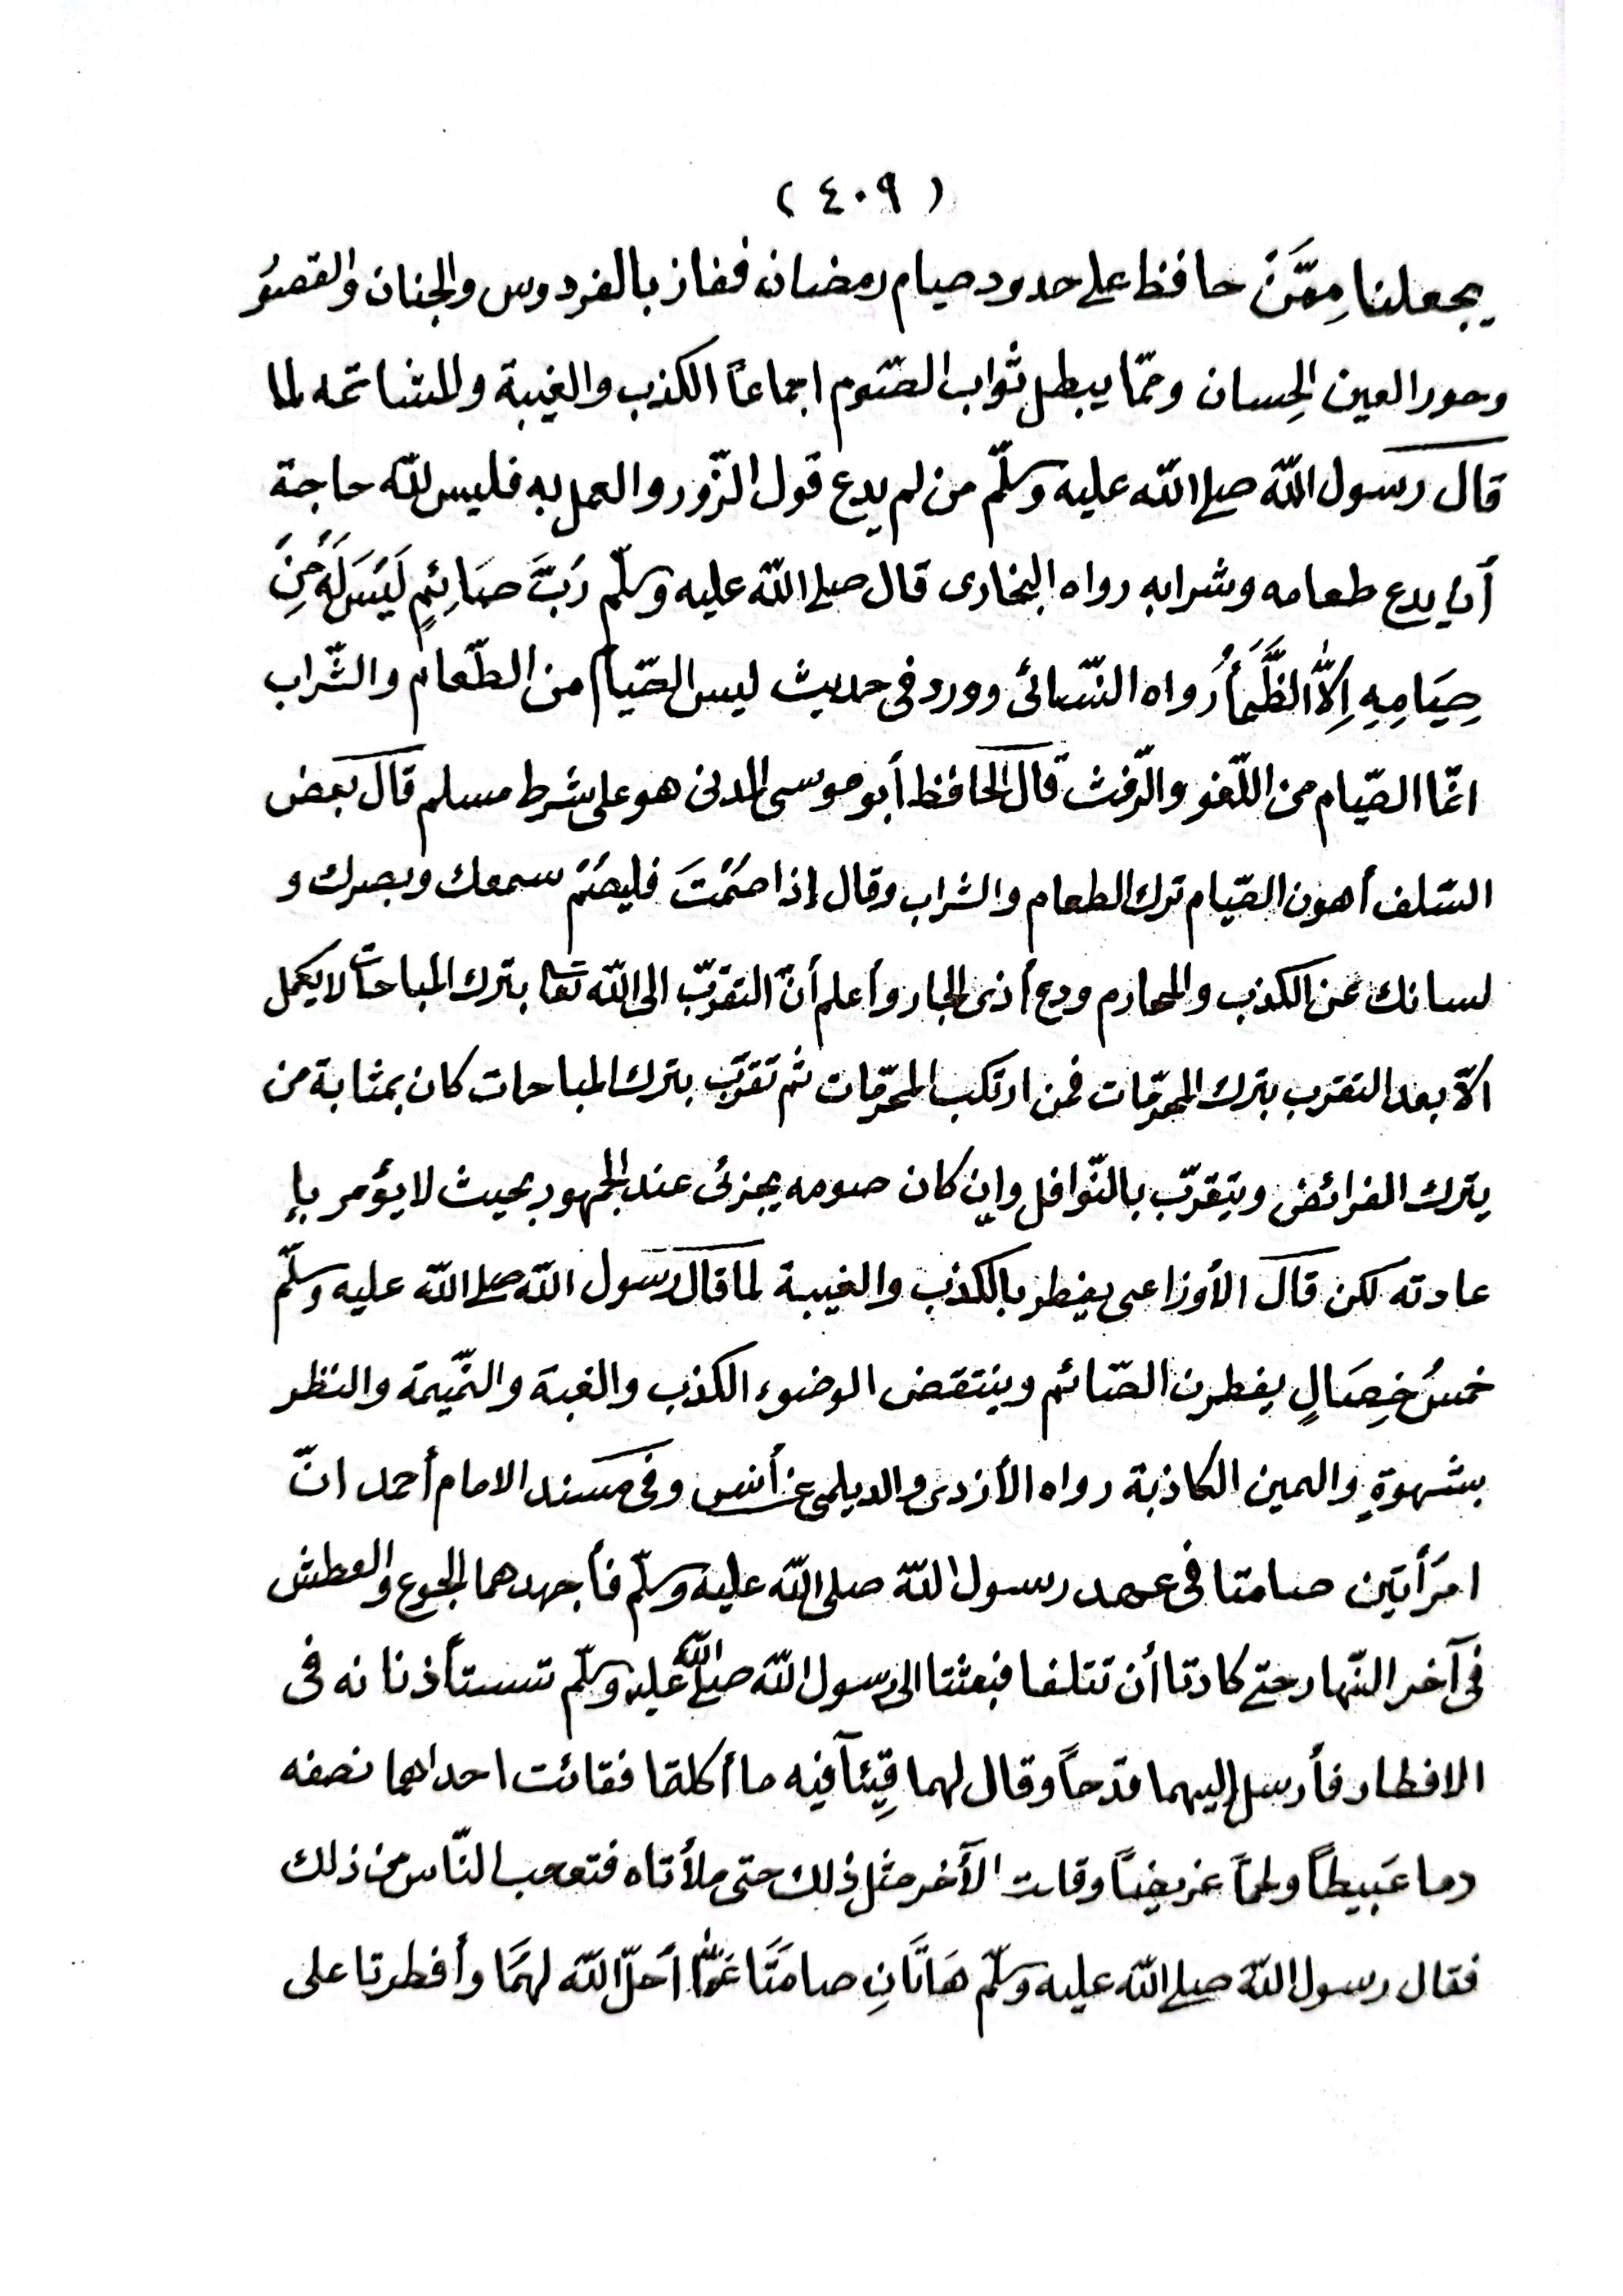 ( ٤٠٩ )
يجعلنا مِمَّنْ حافظ على حدود صيام رمضان ففاز بالفردوس والجنان والقصوُر
وحور العين الحِسان وممّا يبطل ثواب الصّوم اجماعاً الكذب والغيبة والمشاتمه لما
قال رسول اللّه صلى اللّه عليه وسلّم من لم يدع قول الزّور والعمل به فليس للّه حاجة
أن يدع طعامه وشرابه رواه البخارى قال صلى اللّه عليه وسلّم رُبَّ صَائِمٍ لَيْسَ لَهُ مِنْ
صِيَامِهِ اِلاَّ الظَّمَأُ رواه النّسائى وورد فى حديث ليس الصّيام من الطّعام والشّراب
انّما الصّيام من اللّغو والرّفث قال الحافظ أبو موسى المدنى هو على شرط مسلم قال بعض
السّلف أهون الصّيام ترك الطعام والشراب وقال إذا صُمْتَ فليصُمْ سمعك وبصرك و
لسانك عن الكذب والمحارم ودع أذى الجار وأعلم أنّ التقرّب الى اللّه تعا بترك المباحات لا يكمل
الّا بعد التقرب بترك المحرّمات فمن ارتكب المحرّمات ثم تقرّب بترك المباحات كان بمثابة من
يترك الفرائض ويتقرّب بالنّوافل وإن كان صومه يجزئ عند الجمهور بحيث لا يؤمر بإ
عادته لكن قال الأوزاعى يفطر بالكذب والغيبة لما قال رسول اللّه صلى اللّه عليه وسلّم
خمسُ خِصَالٍ يفطرن الصّائم وينتقض الوضوء الكذب والغبة والنّميمة والنظر
بشهوةٍ واليمين الكاذبة رواه الأزدى والديلمى عن أنس وفى مسند الامام أحمد انّ
امرَأتين صامتا فى عهد رسول اللّه صلى اللّه عليه وسلّم فأجهدهما الجوع والعطش
فى آخر النّهار حتى كادتا أن تتلفا فبعثتا الى رسول اللّه صلى اللّه عليه وسلّم تستأذنانه فى
الافطار فأرسل إليهما قدحاً وقال لهما قِيئآ فيه ما أكلتما فقائت احداهما نصفه
دما عَبيطاً ولحماً غريضاً وقائت الآخر مثل ذلك حتى ملأتاه فتعجب النّاس من ذلك
فقال رسول اللّه صلى اللّه عليه وسلّم هَاتَانِ صامَتَا عَمَّا أحلّ اللّه لهمَا وأفطرتا على